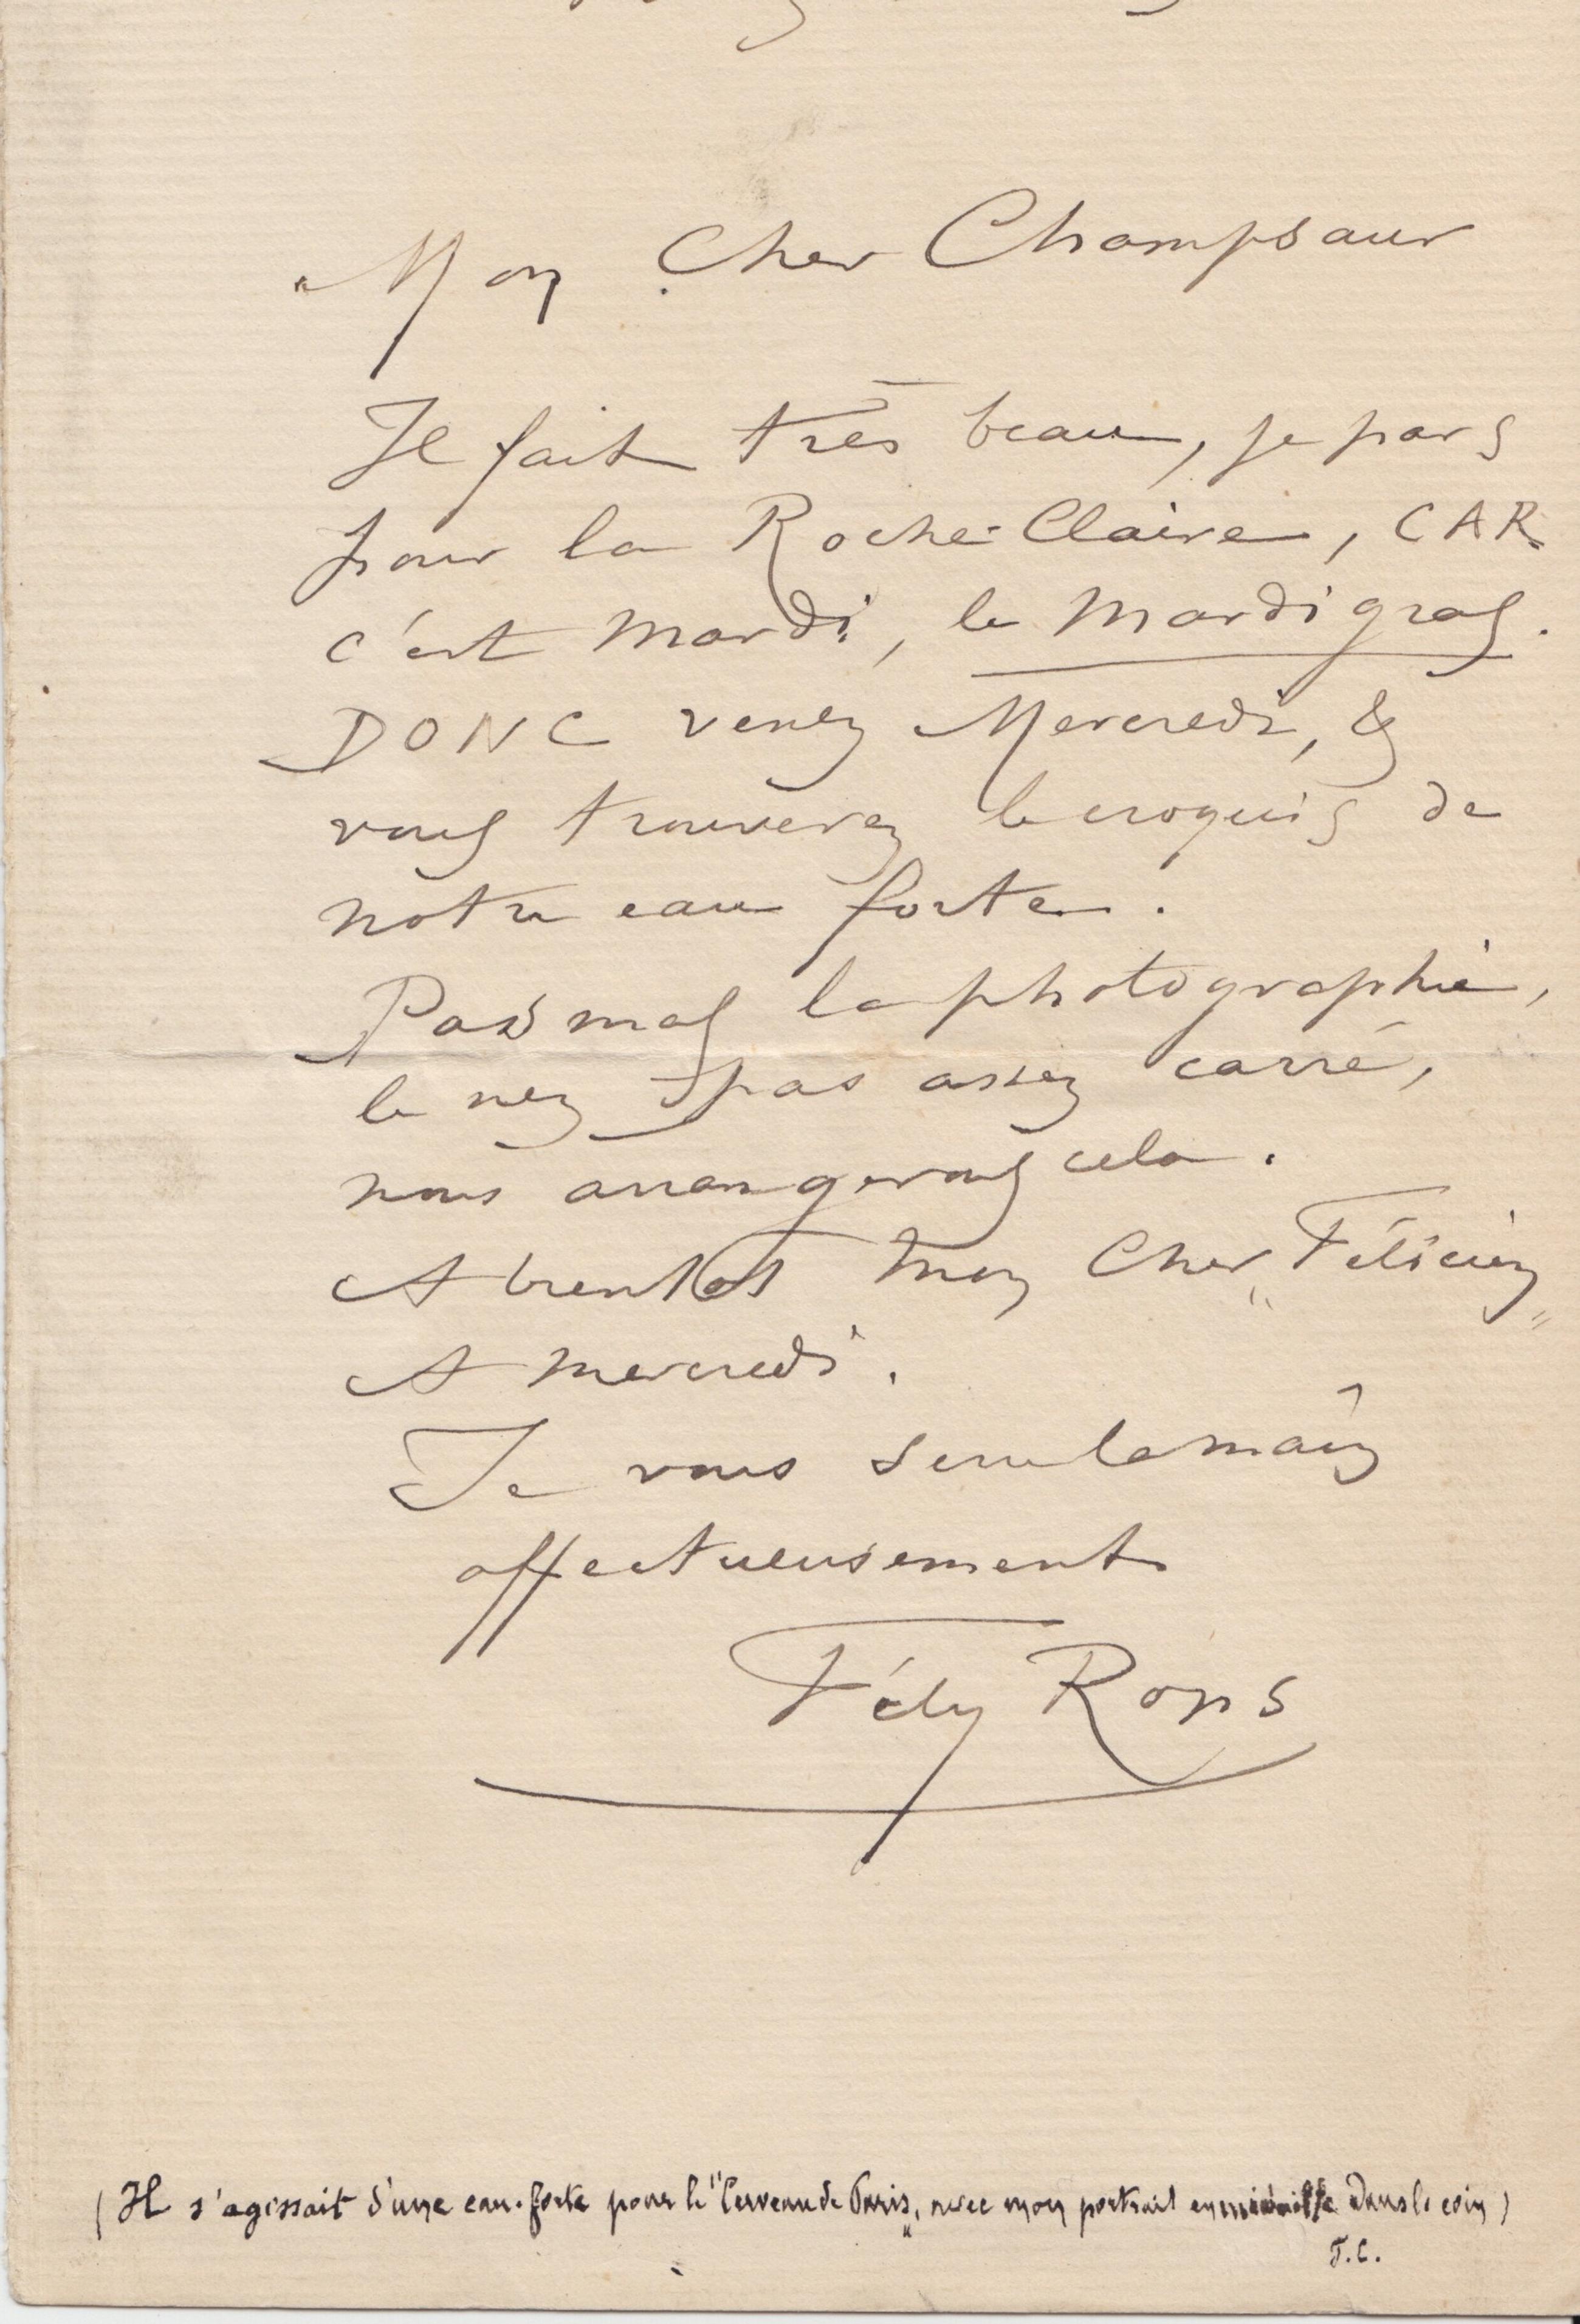 Mon Cher Champsaur
Il fait très beau, je pars
pour la Roche-Claire, CAR
c'est Mardi, le Mardi gras.
DONC venez Mercredi, &
vous trouverez le croquis de
notre eau forte.
Pas mal la photographie,
le nez pas assez carré,
nous arrangerons cela.
A bientot mon Cher „Félicien„
A mercredi.
Je vous serre la main
affectueusement
Fély Rops
(Il s'agissait d'une eau-forte pour le "Cerveau de Paris„, avec mon portrait en dans le coin)
F.C.